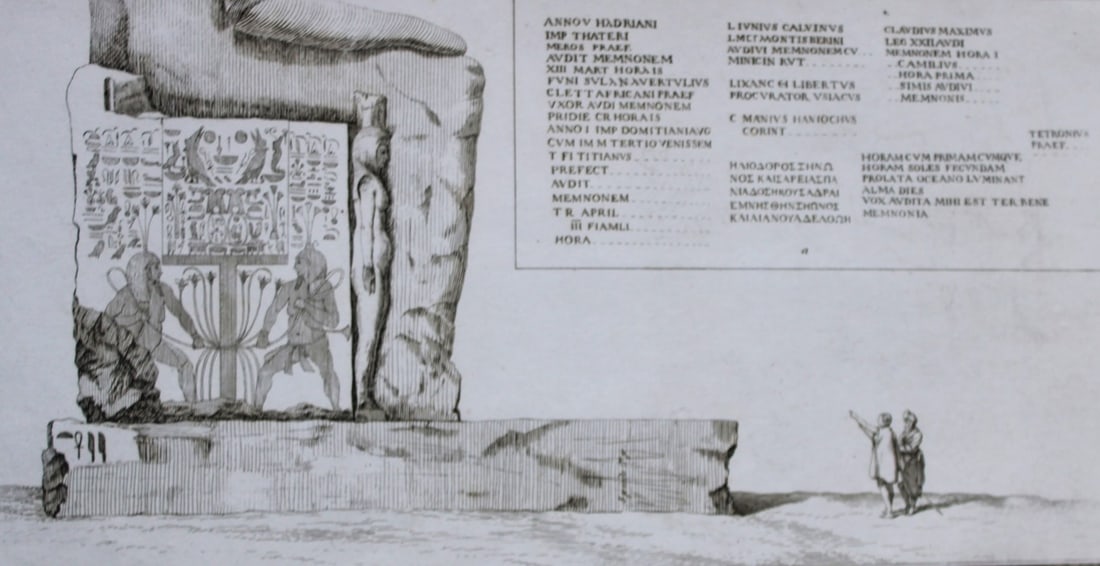 ANNOV HADRIANI
IMP THATERI
MEROS PRAEF.
AVDIT MEMNONEM
XIII MART HORA IS
FVNI SVLANAVERTVLIVS
CLETTAFRICANI PRAEF
VXOR AVDI MEMNONEM
PRIDIE CR HORA IS
ANNO I IMP DOMITIANIAVG
CVM IM M TERTIO VENISSEM
T FI TITIANVS
PREFECT
AVDIT
MEMNONEM
T R APRIL
III FIAMLI
HORA
L IVNIVS CALVINVS
MONTIS BERINI
AVDIVI MEMNONEM CV
MINICIN RVT
LIXANC EI LIBERTVS
PROCVRATOR VSIACVS
C MANIVS HANIOCHVS
CORINT
ΗΛΙΟΔΟΡΟΣ ΖΗΝΩ
ΝΟΣ ΚΑΙΣΑΡΕΙΑΣΠΑ
ΝΙΑΔΟΣΗΚΟΥΣΑΔΡΑΙ
ΕΜΝΗΣΘΗΝΖΗΩΝΟΣ
ΚΑΙΑΙΑΝΟΥΑΔΕΛΟΩΗ
CLAVDIVS MAXIMVS
LEG XXII AVDI
MEMNONEM HORA I
CAMILIVS
HORA PRIMA
SIMIS AVDIVI
MEMNONIS
TETRONIVS
PRAEF.
HORAM CVM PRIMAM CVMQVE
HORAM SOLES FECVNDAM
PROLATA OCEANO LVMINANT
ALMA DIES
VOX AVDITA MIHI EST TER BENE
MEMNONIA
a